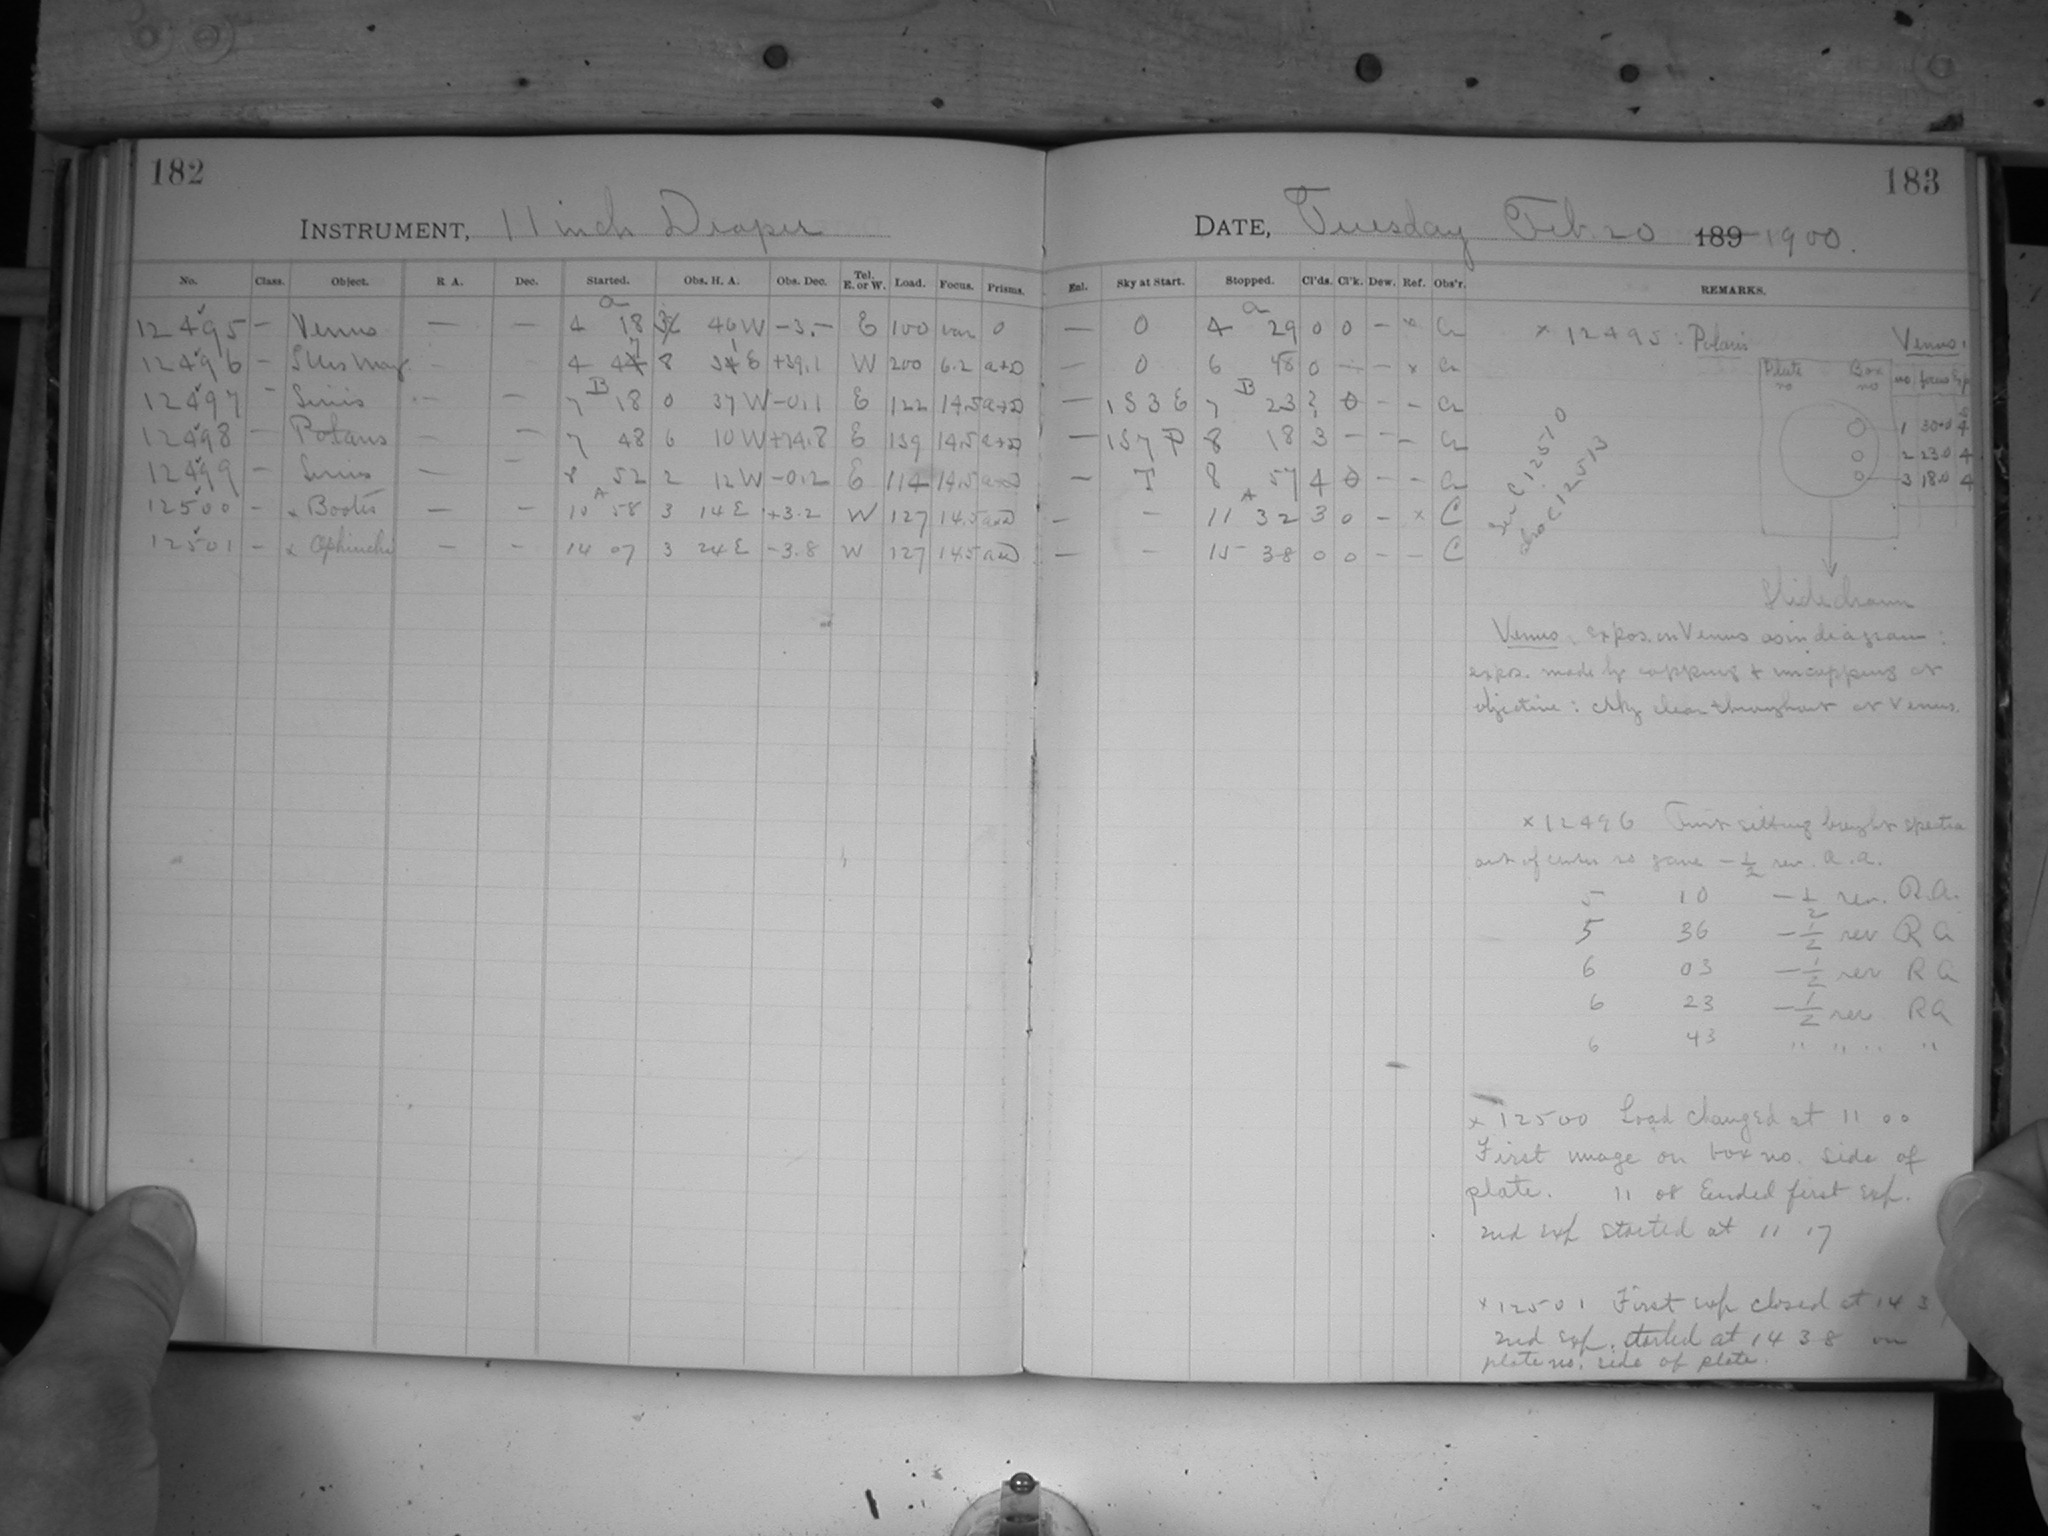 182
183
INSTRUMENT, 11 inch Draper
DATE, Tuesday Feb 20 189 1900.
No. Class. Object. R A. Dec. Started. Obs. H. A. Obs. Dec. Tel. E. or W. Load. Focus. Prisms. Enl. Sky at Start. Stopped. Cl'ds. Cl'k. Dew. Ref. Obs'r. REMARKS.
12495 — Venus — — a 4 18 3 46 W −3.− E 100 var 0 — 0 a 4 29 0 0 —
12496 — 4 47 8 31 E +39.1 W 200 6.2 a+D — 0 6 48 0 — — x
12497 — Sirius — B 7 18 0 37 W −0.1 E 122 14.5 a+D — 153 E B 7 23 3 0 — —
12498 — Polaris — — 7 48 6 10 W +74.8 E 159 14.5 a+D — 157 P 8 18 3 — — —
12499 — Sirius — — 8 52 2 12 W −0.2 E 114 14.5 a+D — T 8 57 4 0 — —
12500 — x Bootis — — A 10 58 3 14 E +3.2 W 127 14.5 a+D — — A 11 32 3 0 — x C
12501 — x Ophiuchi — — 14 07 3 24 E −3.8 W 127 14.5 a+D — — 15 38 0 0 — — C
x 12495 : Polaris
Venus.
Plate no Box no
no focus Exp
1 30.0 4
2 23.0 4
3 18.0 4
See C 12510
also C 12513
Slide drawn
Venus. expos. on Venus as in diagram :
expos. made by capping + uncapping at
objective : sky clear throughout at Venus.
x 12496 First setting bright spectra
out of center so gave −1/2 rev.
5 10 −1/2 rev. R.A.
5 36 −1/2 rev R A
6 03 −1/2 rev R A
6 23 −1/2 rev RA
6 43 " " " "
x 12500 Load changed at 11 00
First image on box no. side of
plate. 11 08 Ended first exp.
2nd exp started at 11 17
x 12501 First exp closed at 14 3
2nd exp. started at 14 38 on
plate no. side of plate.